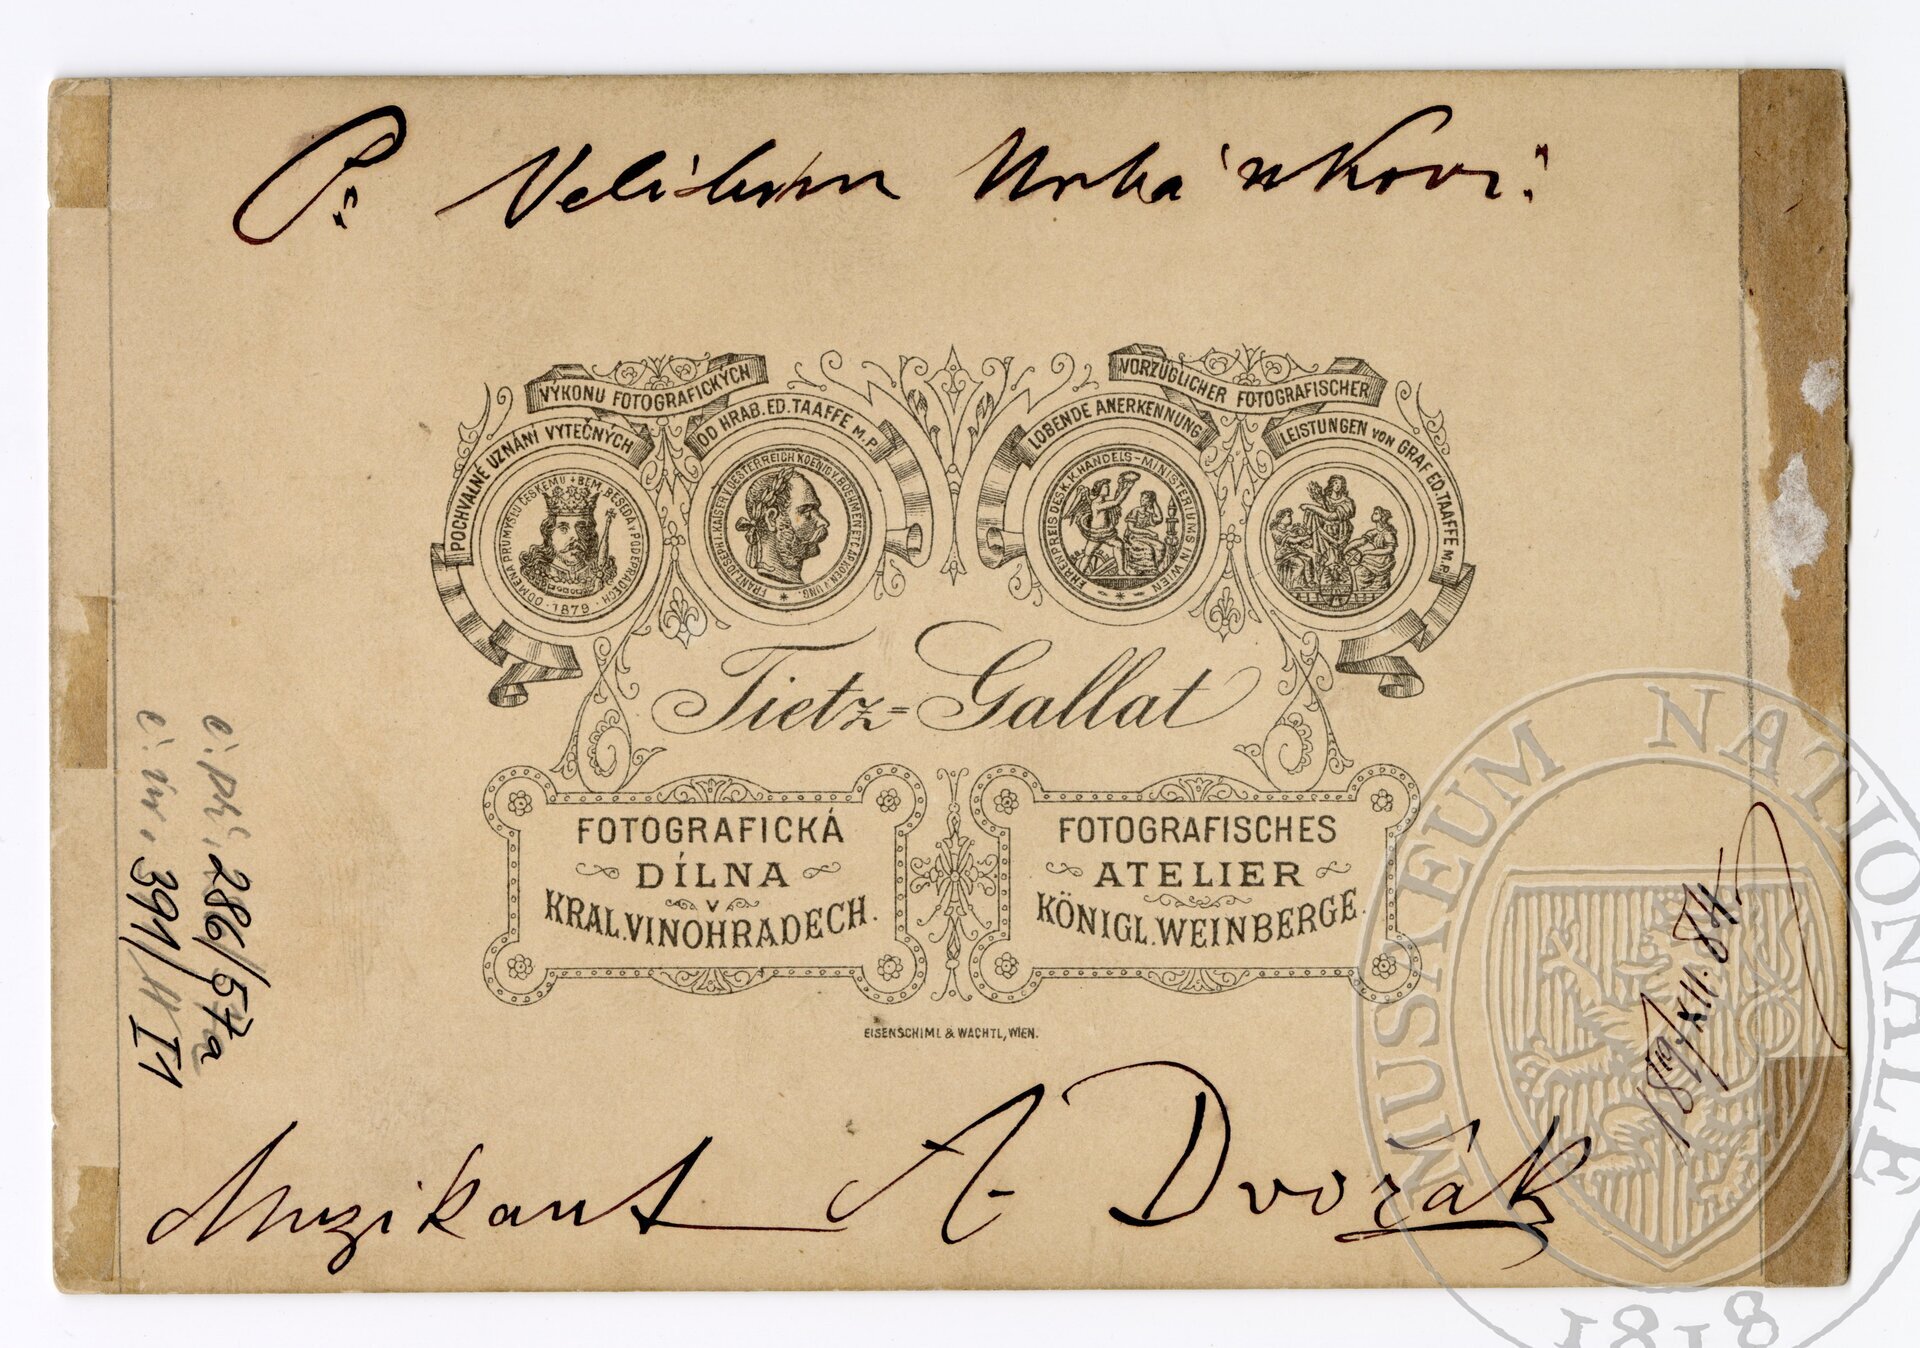 P. Velebínu Urbánkovi!
VÝKONU FOTOGRAFICKÝCH
POCHVALNÉ UZNÁNÍ VYTEČNÝCH
OD HRAB. ED. TAAFFE M.P.
VORZÜGLICHER FOTOGRAFISCHER
LOBENDE ANERKENNUNG
LEISTUNGEN VON GRAF ED. TAAFFE M.P.
ODMĚNA PRŮMYSLU ČESKÉMU + ŘEM. BESEDA V PODĚBRADECH · 1879 ·
FRANZ JOSEPH I. KAISER V. OESTERREICH KOENIG V. BOEHMEN ETC. APOST. KOEN. V. UNG.
EHRENPREIS DES K.K. HANDELS-MINISTERIUMS IN WIEN
Tietz=Gallat
FOTOGRAFICKÁ
DÍLNA
V
KRÁL. VINOHRADECH.
FOTOGRAFISCHES
ATELIER
KÖNIGL. WEINBERGE.
EISENSCHIML & WACHTL, WIEN.
Muzikant A. Dvořák
18 19/XII. 84
č. př. 286/57a
č. inv. 391/H I1
MUSEUM NATIONALE
1818